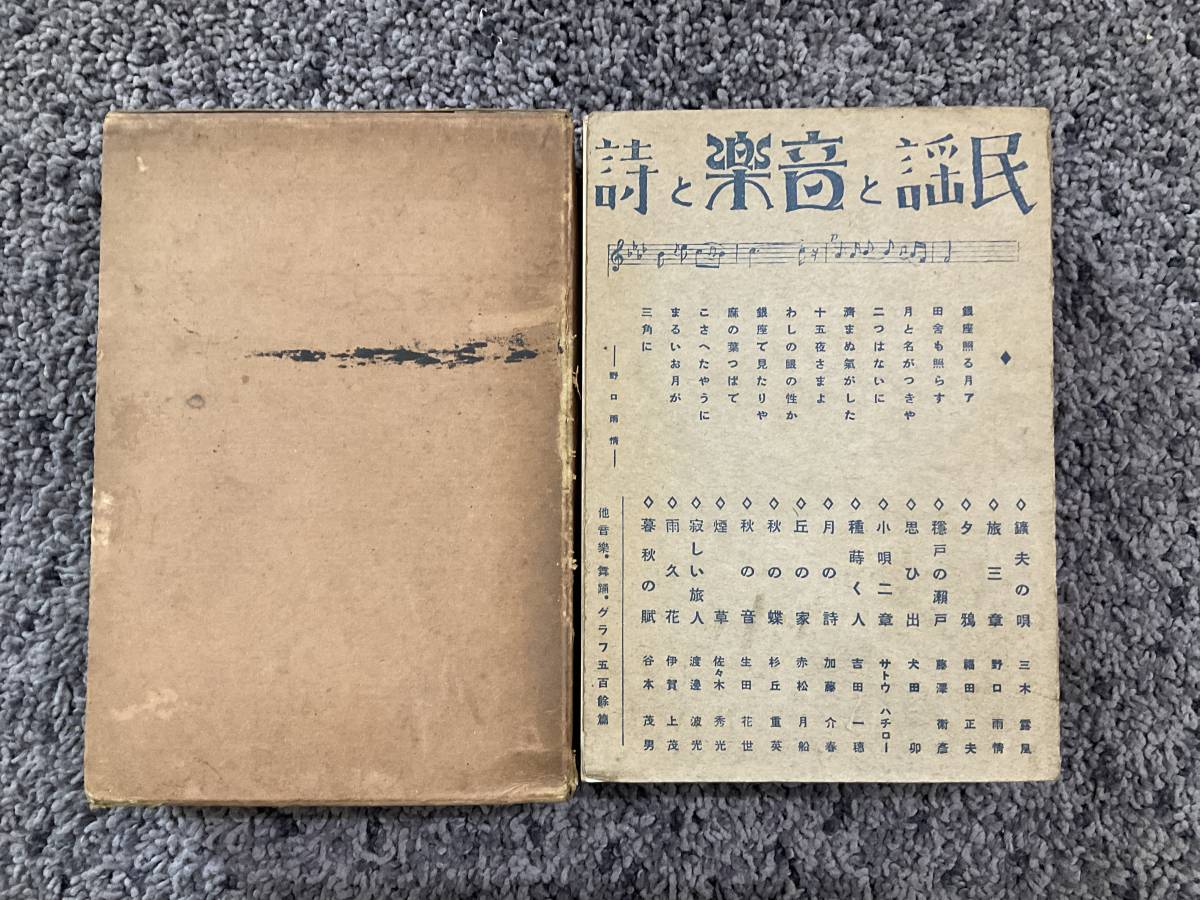 民謡と音楽と詩
◆
銀座照る月ア
田舎も照らす
月と名がつきや
二つはないに
濟まぬ氣がした
十五夜さまよ
わしの眼の性か
銀座で見たりや
麻の葉つぱで
こさへたやうに
まるいお月が
三角に
——野口雨情——
◇鑛夫の唄 三木露風
◇旅三章 野口雨情
◇夕鴉 福田正夫
◇穩戸の瀬戸 藤澤衞彦
◇思ひ出 犬田卯
◇小唄二章 サトウハチロー
◇種蒔く人 吉田一穂
◇月の詩 加藤介春
◇丘の家 赤松月船
◇秋の蝶 杉丘重英
◇秋の音 生田花世
◇煙草 佐々木秀光
◇寂しい旅人 渡邊波光
◇雨久花 伊賀上茂
◇暮秋の賦 谷本茂男
他音樂・舞踊・グラフ五百餘篇